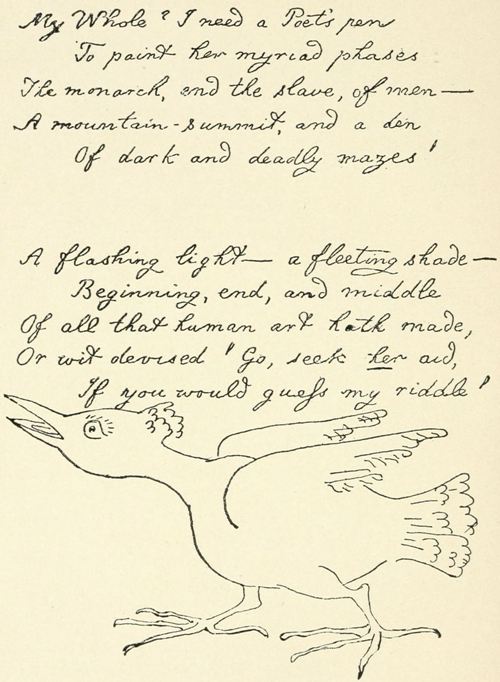 My Whole? I need a Poet's pen
To paint her myriad phases
The monarch, and the slave, of men—
A mountain-summit, and a den
Of dark and deadly mazes!
A flashing light— a fleeting shade—
Beginning, end, and middle
Of all that human art hath made,
Or wit devised! Go, seek her aid,
If you would guess my riddle!